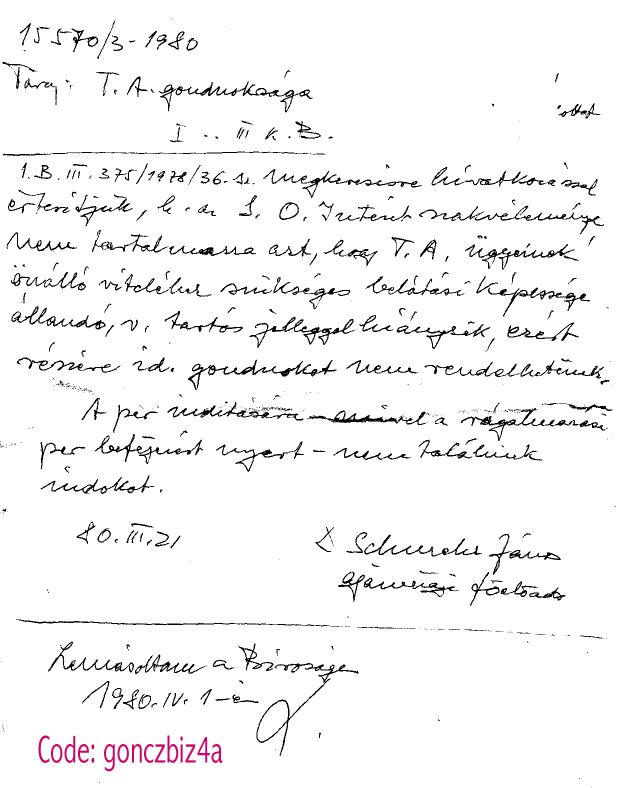 15570/3-1980
Tárgy: T. A. gondnoksága
I .. III k. B.
1. B. III. 375/1978/36. sz. megkeresésre hivatkozással
értesítjük, h. az I. O. Intézet szakvéleménye
nem tartalmazza azt, hogy T. A. ügyeinek
önálló viteléhez szükséges belátási képessége
állandó, v. tartós jelleggel hiányzik, ezért
részére id. gondnokot nem rendelhetünk.
A per indítására – mivel a rágalmazási
per befejezést nyert – nem találunk
indokot.
80. III. 21
János
főelőadó
Lemásoltam a Bíróságon
1980. IV. 1-én
Code: gonczbiz4a